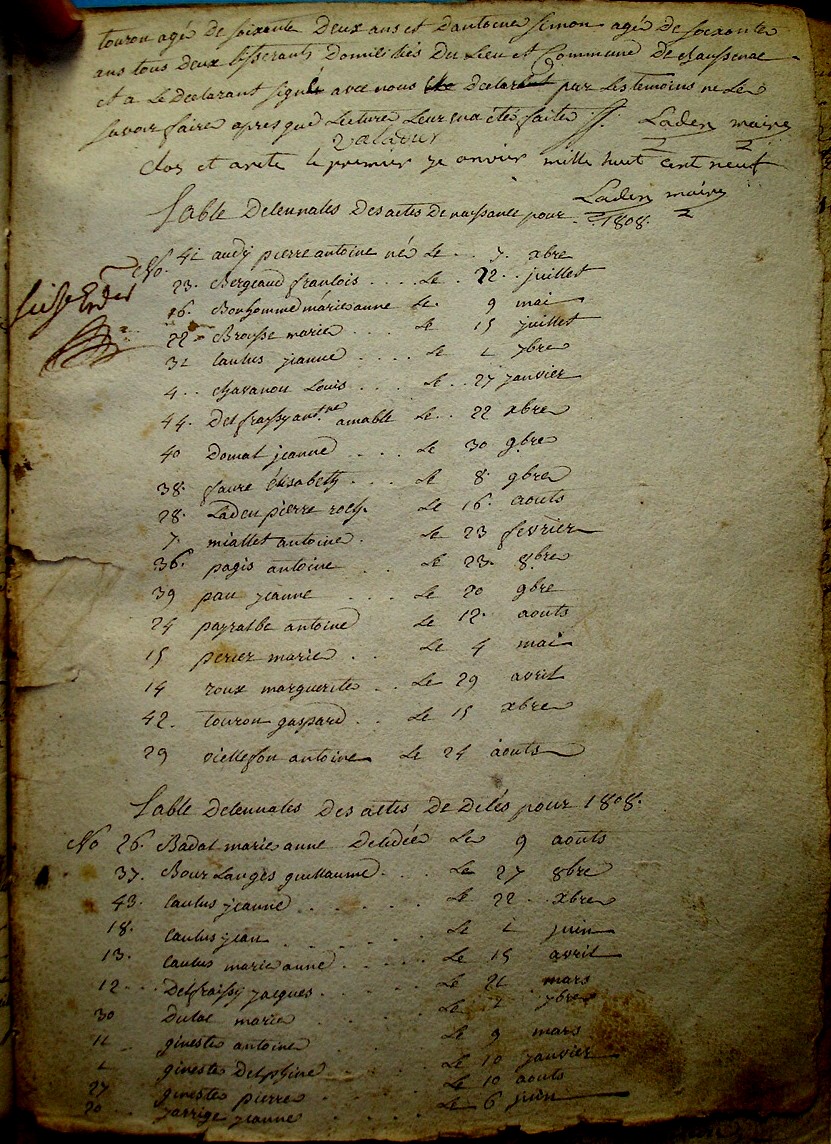 touron agé de soixante Deux ans et d'antoine simon agé de soixante
ans tous deux tisserants Domiciliés Du Lieu et Commune De chaussenac
et a Le Declarant signé avec nous declarant pur Les temoins ne Le
savoir faire apres que Lecture Leur en a été faite Laden maire
valadier
Clos et areté le premier janvier mille huit cent neuf
Laden maire
Table Decennales Des actes De naissance pour 1808.
No. 41 audy pierre antoine né Le 7. xbre
23. Bergeaud francois Le 22 juillet
16. Bonhomme marie anne Le 9 mai
22 Brousse marie Le 15 juillet
31 Caulus jeanne Le 1 7bre
4 chavanon Louis Le 27 janvier
44. Delfraissy antne amable Le 22 xbre
40 Domat jeanne Le 30 9bre
38. faure élisabeth Le 8 9bre
28. Laden pierre roch Le 16 aouts
7 miallet antoine Le 23 fevrier
36. pagis antoine Le 23. 8bre
39 pau jeanne Le 20 9bre
24 payralbe antoine Le 12. aouts
15 perier marie Le 4 mai
14 roux marguerite Le 29 avril
42. touron gaspard Le 15 xbre
29 viellefon antoine Le 24 aouts
Table Decennales Des actes De Décés pour 1808.
No 26. Badal marie anne Decedée Le 9 aouts
37. Bourlanges guillaume Le 27 8bre
43. Caulus jeanne Le 22 xbre
18. Caulus jean Le 1 juin
13. Caulus marie anne Le 15 avril
12 Delfraissy jacques Le 21 mars
30 Dulac marie Le 2 7bre
11 gineste antoine Le 9 mars
1 gineste Delphine Le 10 janvier
27 gineste pierre Le 10 aouts
20 jarrige jeanne Le 6 juin